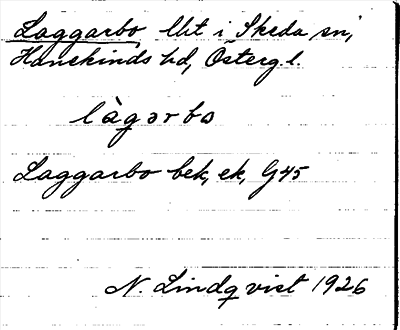 Laggarbo lht i Skeda sn,
Hanekinds hd, Österg. l.
làgərbo
Laggarbo bek, ek, G45
N. Lindqvist 1926